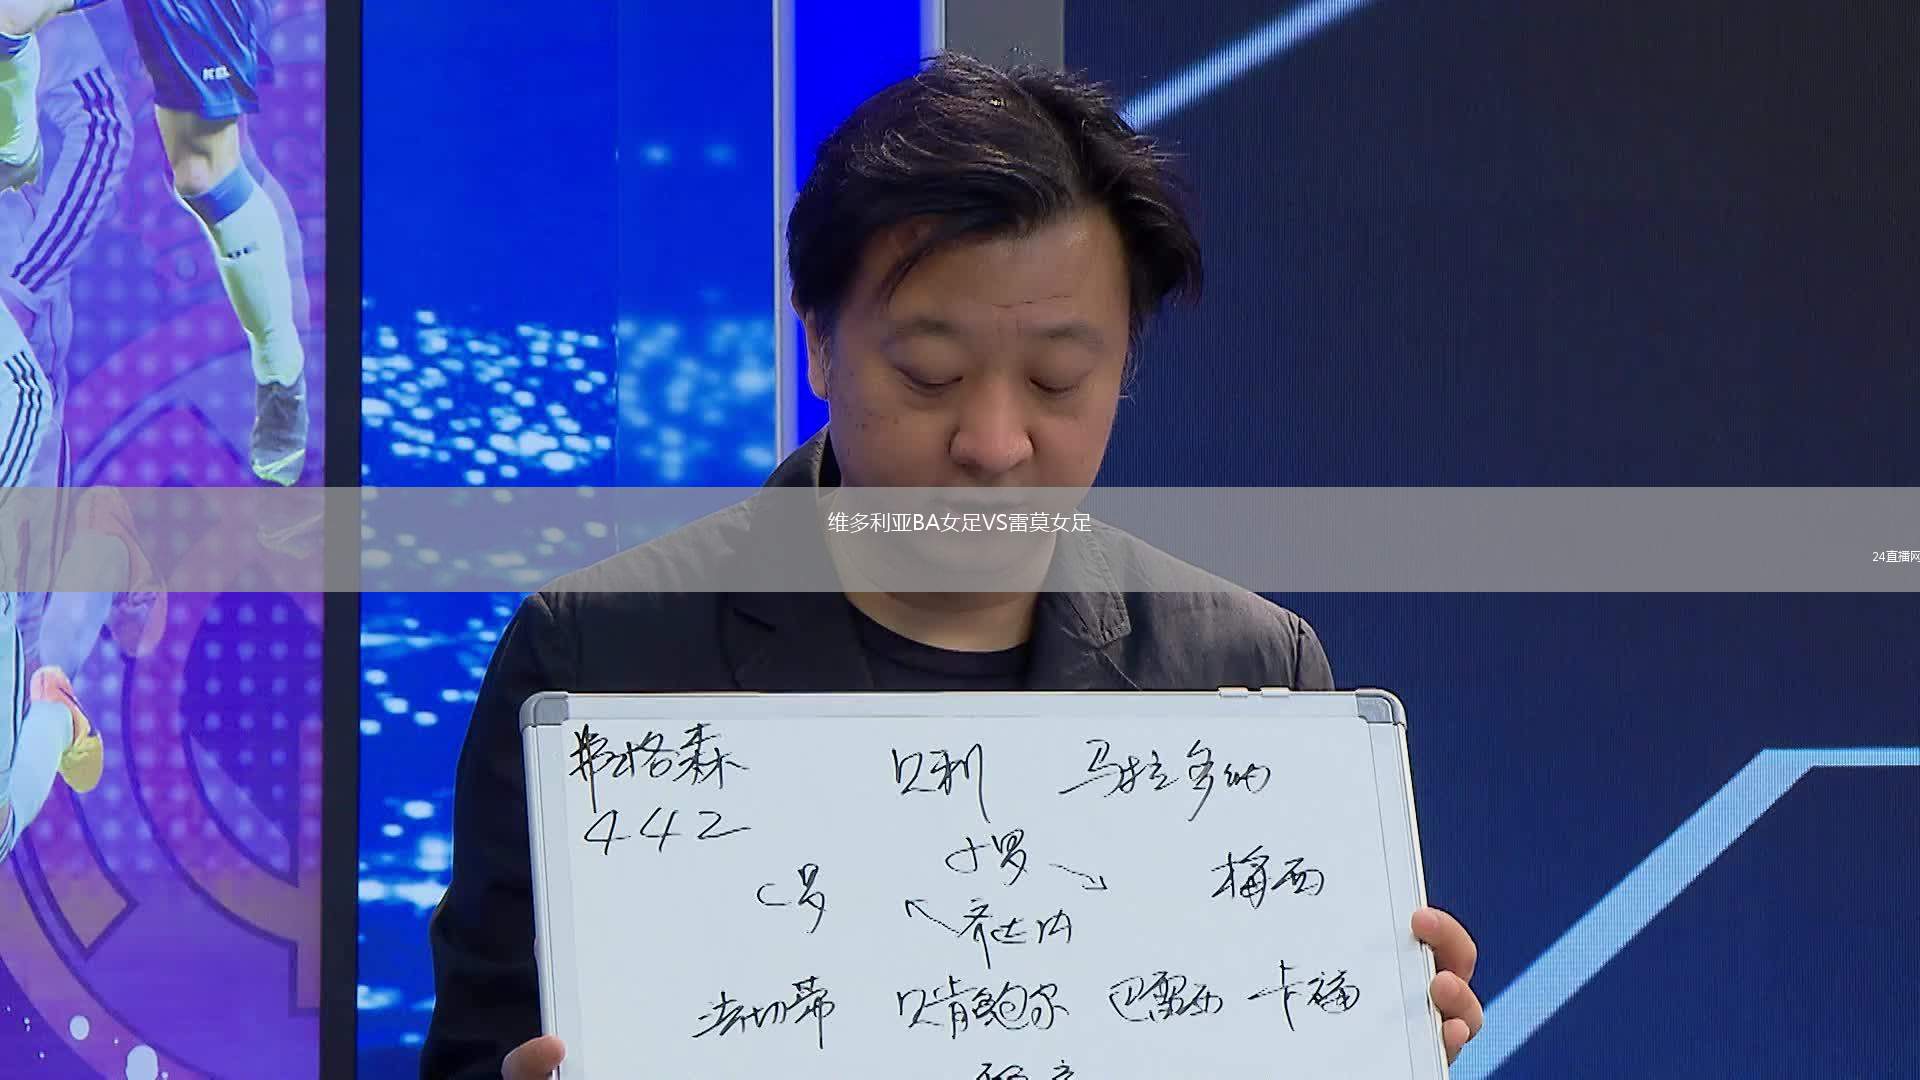 维多利亚BA女足VS雷莫女足
24直播网
弗格森 贝利 马拉多纳
442
小罗
C罗 梅西
齐达内
法切蒂 贝肯鲍尔 巴雷西 卡福